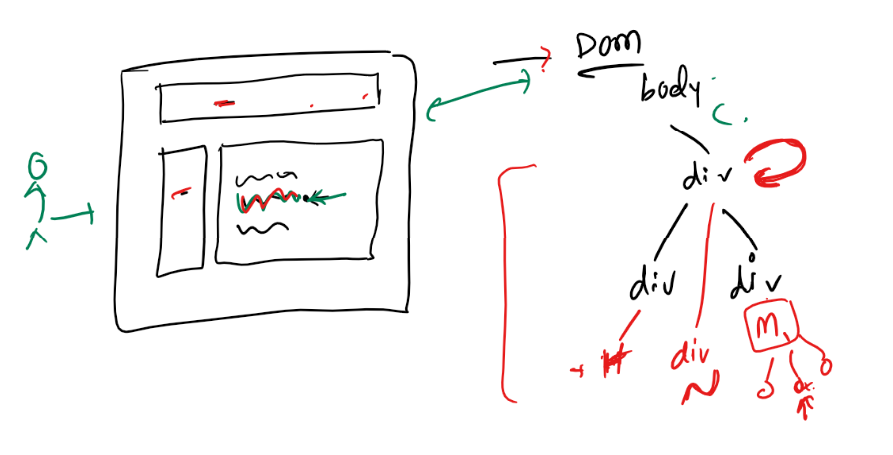 Dom
body
div
div
div
div
M